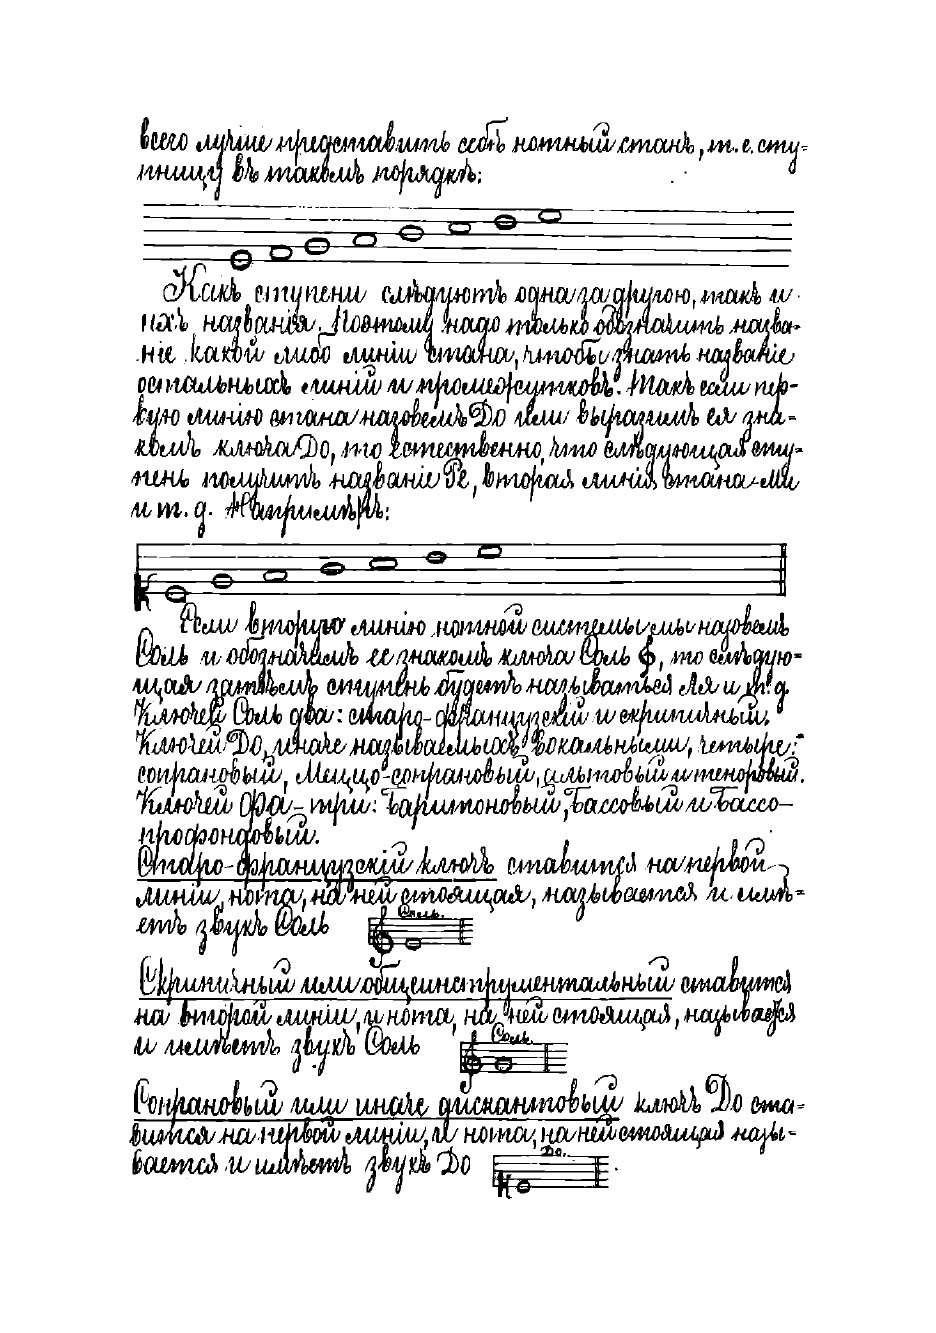 всего лучше представить себѣ нотный станъ, т. е. сту=
пницу въ такомъ порядкѣ:
Какъ ступени слѣдуютъ одна за другою, такъ и
ихъ названія. Поэтому надо только обозначить назва-
ніе какой либо линіи стана, чтобы знать названіе
остальныхъ линій и промежутковъ. Такъ если пер-
вую линію стана назовемъ До или выразимъ ея зна-
комъ ключа До, то естественно, что слѣдующая сту-
пень получитъ названіе Ре, вторая линія стана - Ми
и т. д. Напримѣръ:
Если вторую линію нотной системы мы назовемъ
Соль и обозначимъ ее знакомъ ключа Соль 𝄞, то слѣдую=
щая затѣмъ ступень будетъ называться Ля и т. д.
Ключей Соль два: старо-французскій и скрипичный.
Ключей До, иначе называемыхъ вокальными, четыре:
сопрановый, Меццо-сопрановый, альтовый и теноровый.
Ключей Фа - три: Баритоновый, Бассовый и Бассо-
профондовый.
Старо-французскій ключъ ставится на первой
линіи, нота, на ней стоящая, называется и имѣ=
етъ звукъ Соль
Соль.
Скрипичный или общеинструментальный ставится
на второй линіи, и нота, на ней стоящая, называется
и имѣетъ звукъ Соль
Соль.
Сопрановый или иначе дискантовый ключъ До ста=
вится на первой линіи, и нота, на ней стоящая назы-
вается и имѣетъ звукъ До
До.